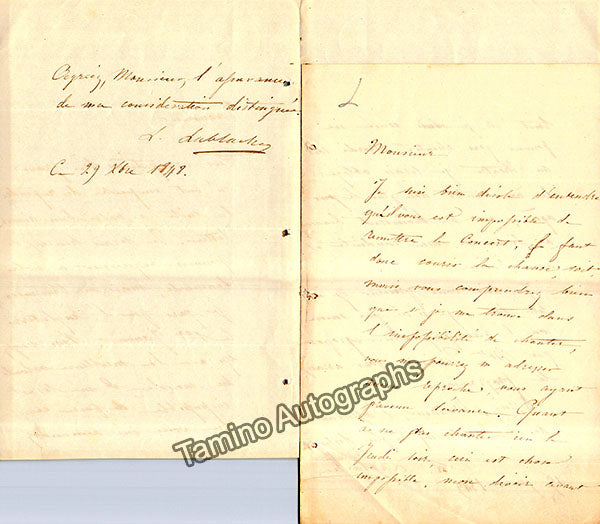 Agréez, Monsieur, l'assurance
de ma considération distinguée.
L. Lablache
Ce 29 Xbre 1842.
L
Monsieur
Je suis bien désolé d'entendre
qu'il vous est impossible de
remettre le Concert; Il faut
donc courir la chance; soit
mais vous comprendrez bien
que si je me trouve dans
l'impossibilité de chanter,
vous ne pourrez m'adresser
reproche, vous ayant
prévenu d'avance. Quant
à ne plus chanter le
jeudi soir, ceci est chose
impossible. mon devoir avant
Tamino Autographs